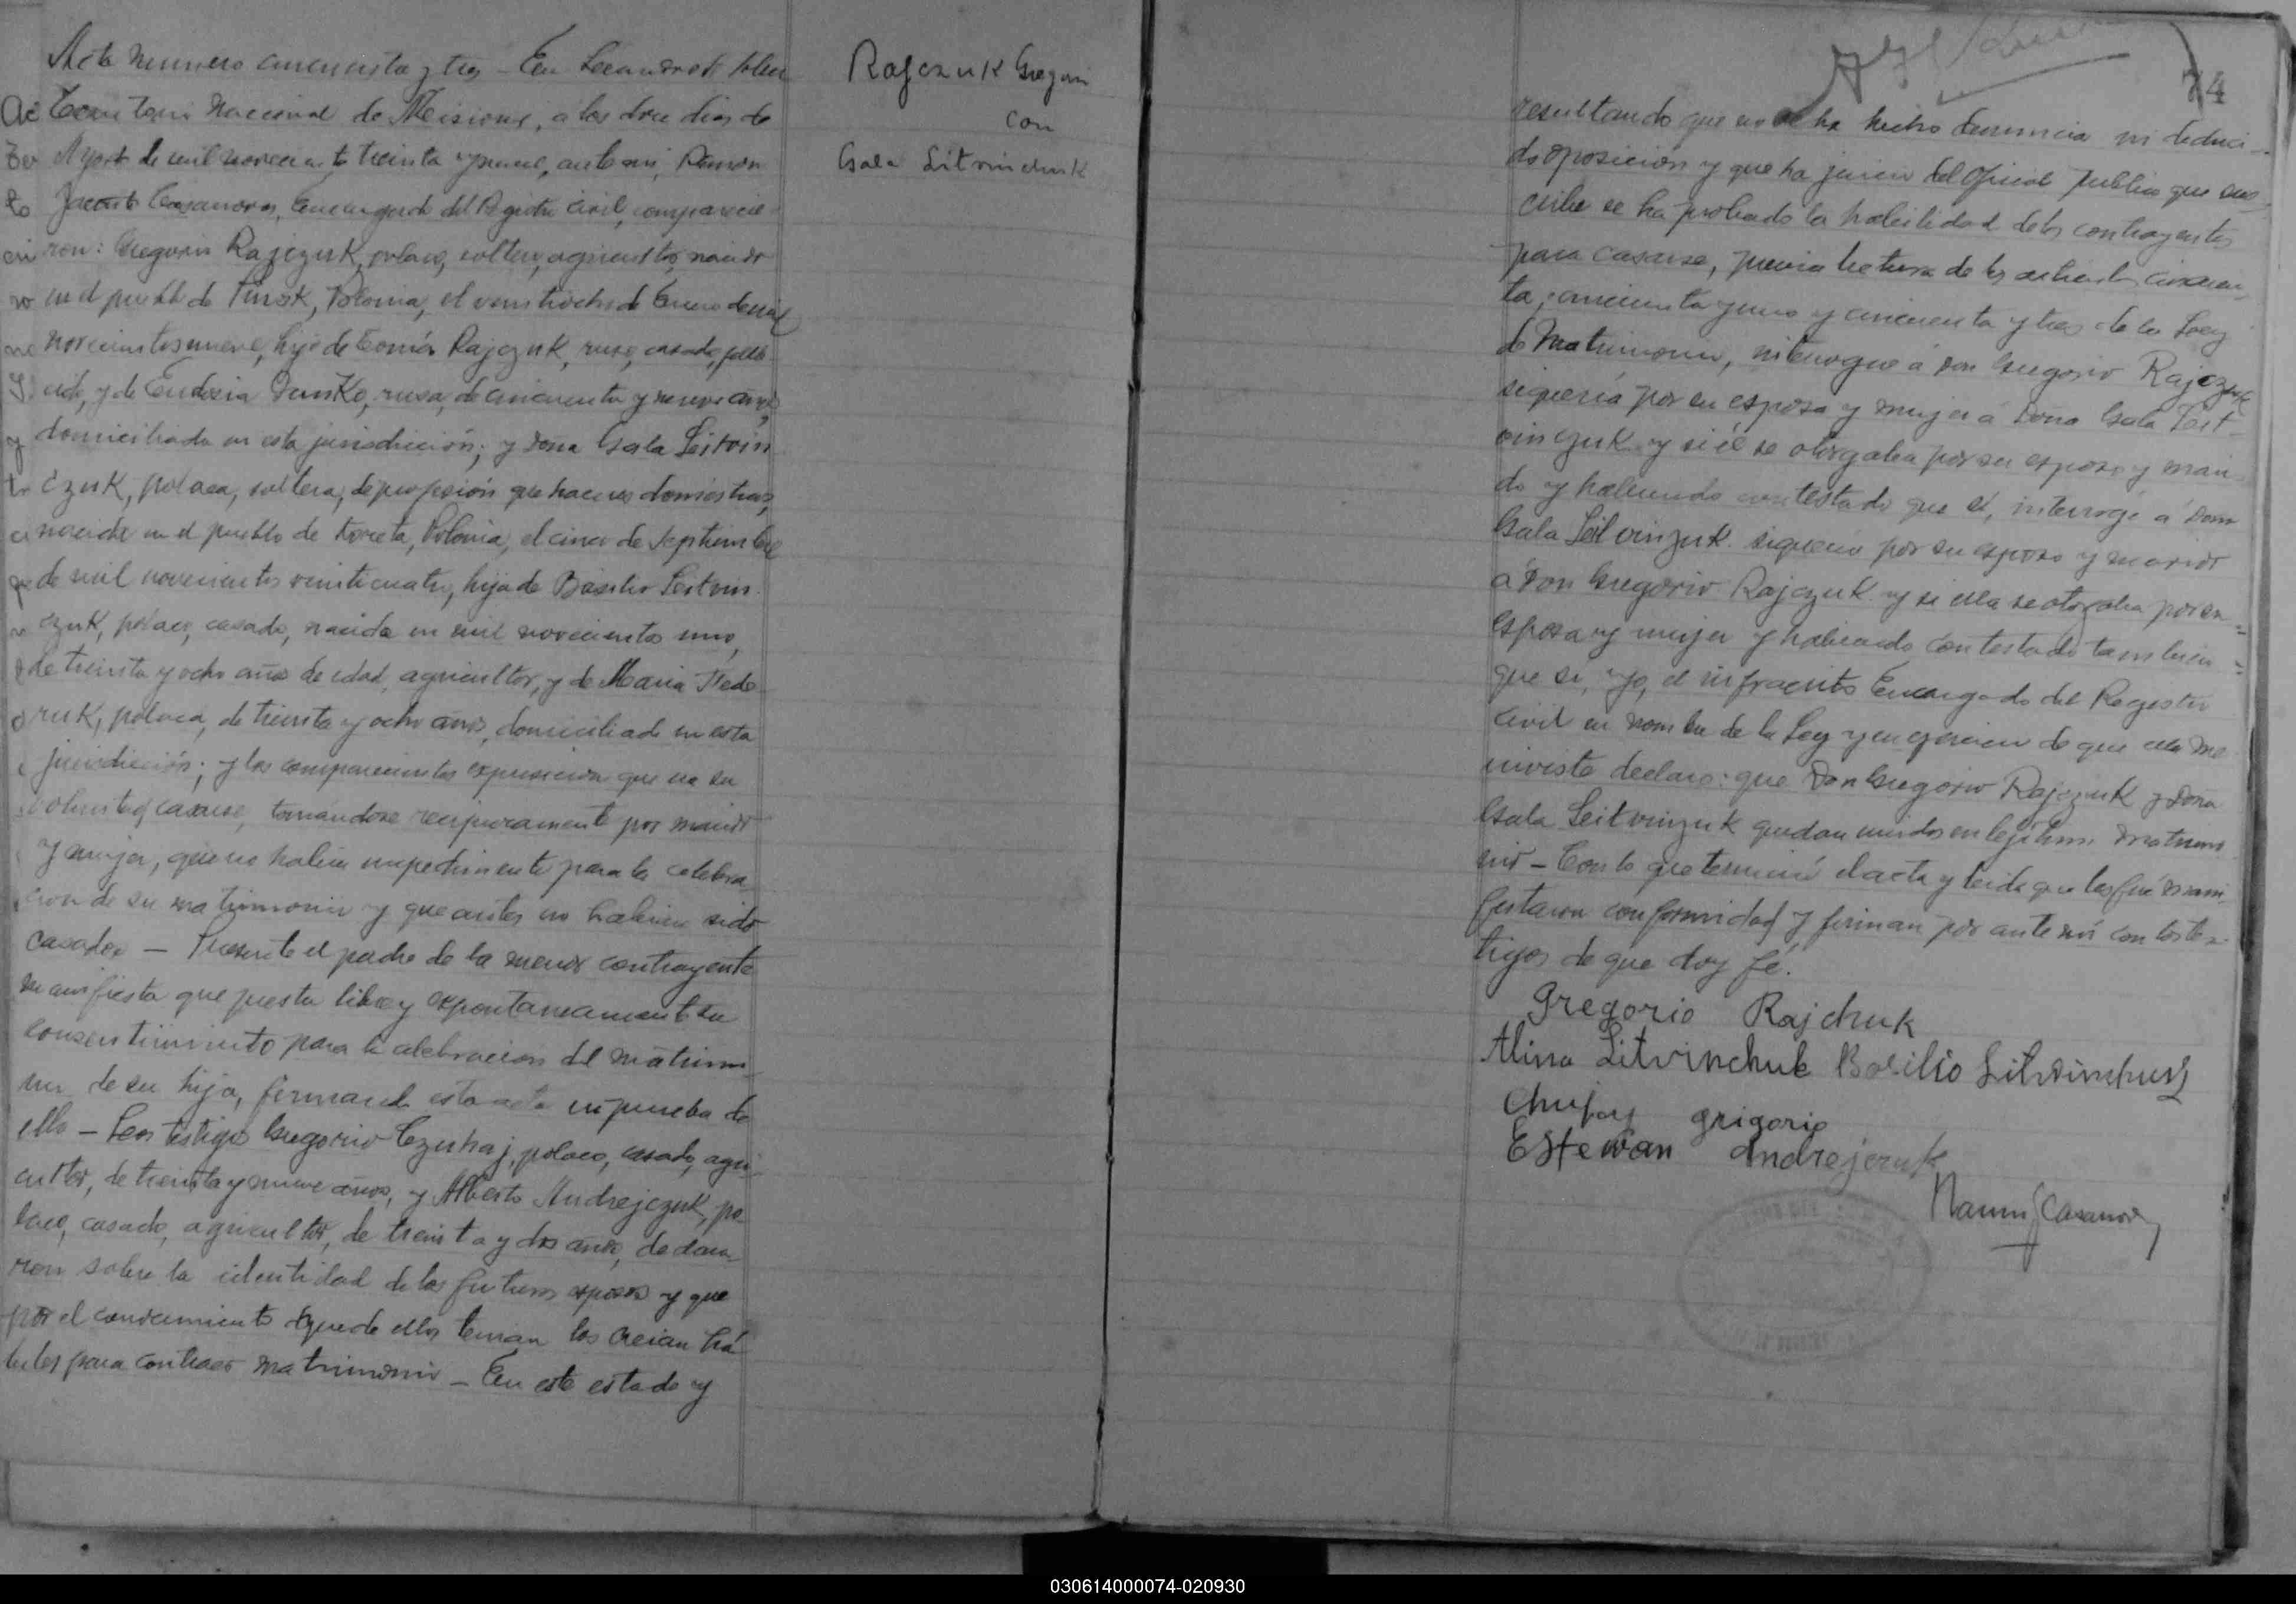 Acta numero cincuenta y tres - En Leandro N. Alem
Territorio Nacional de Misiones, a los doce dias de
Agosto de mil novecientos treinta y nueve, ante mi, Ramon
Jacinto Casanova, Encargado del Registro Civil, comparecie-
ron: Gregorio Rajczuk, polaco, soltero, agricultor, nacido
en el pueblo de Pinsk, Polonia, el veintiocho de Enero de mil
novecientos nueve, hijo de Tomás Rajczuk, ruso, casado, falle-
cido, y de Eudosia Dunko, rusa, de cincuenta y nueve años,
domiciliada en esta jurisdicción; y doña Gala Leitvin
czuk, polaca, soltera, de profesión quehaceres domésticos,
nacida en el pueblo de, Polonia, el cinco de Septiembre
de mil novecientos veinticuatro, hija de Basilio Leitvin
czuk, polaco, casado, nacido en mil novecientos uno,
de treinta y ocho años de edad, agricultor, y de Maria Fede
ruk, polaca, de treinta y ocho años, domiciliada en esta
jurisdicción; y los comparecientes expusieron que era su
voluntad casarse, tomándose reciprocamente por marido
y mujer, que no habia impedimento para la celebra-
cion de su matrimonio y que antes no habian sido
casados — Presente el padre de la menor contrayente
manifiesta que presta libre y espontaneamente su
consentimiento para la celebracion del matrimo
nio de su hija, firmando esta acta en prueba de
ello - Los testigos Gregorio Czuhaj, polaco, casado, agri-
cultor, de treinta y nueve años, y Alberto Andrejczuk, po-
laco, casado, agricultor, de treinta y dos años, declara-
ron sobre la identidad de los futuros esposos y que
por el conocimiento que de ellos tenian los creian há-
biles para contraer matrimonio - En este estado y
Rajczuk Gregorio
con
Gala Litvinchuk
74
resultando que no se ha hecho denuncia ni deduci-
do oposición y que ha juicio del Oficial Publico que sus-
cribe se ha probado la habilidad de los contrayentes
para casarse, previa lectura de los articulos cincuen-
ta, cincuenta y uno y cincuenta y tres de la Ley
de Matrimonio, interrogue á don Gregorio Rajczuk
si queria por su esposa y mujer á doña Gala Leit-
vinczuk y si él se otorgaba por su esposo y mari-
do y habiendo contestado que sí, interrogé á doña
Gala Leitvinzuk si queria por su esposo y marido
á Don Gregorio Rajczuk y si ella se otorgaba por su
esposa y mujer y habiendo contestado tambien
que si, yo, el infrascrito Encargado del Registro
Civil en nombre de la Ley y en ejercicio de que ella me
inviste declaro: que Don Gregorio Rajczuk y Doña
Gala Leitvinzuk quedan unidos en legitimo matrimo
nio - Con lo que terminó el acta y leida que les fué mani-
festaron conformidad y firman por ante mi con los tes-
tigos de que doy fé.
Gregorio Rajchuk
Alina Litvinchuk Basilio Litvinchuk
Chujay grigorio
Estewan Andrejczuk
Ramon J Casanova
030614000074-020930